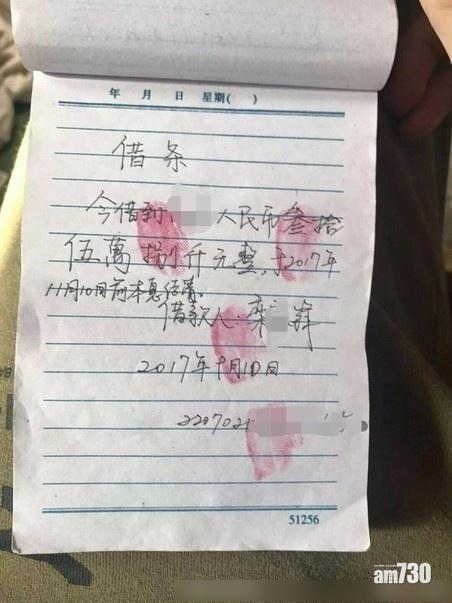 年 月 日 星期( )
借条
今借到 人民币叁拾
伍萬捌仟元整,于2017年
11月10日前本息结清。
借款人:栾
2017年十月10日
220702
51256
am730